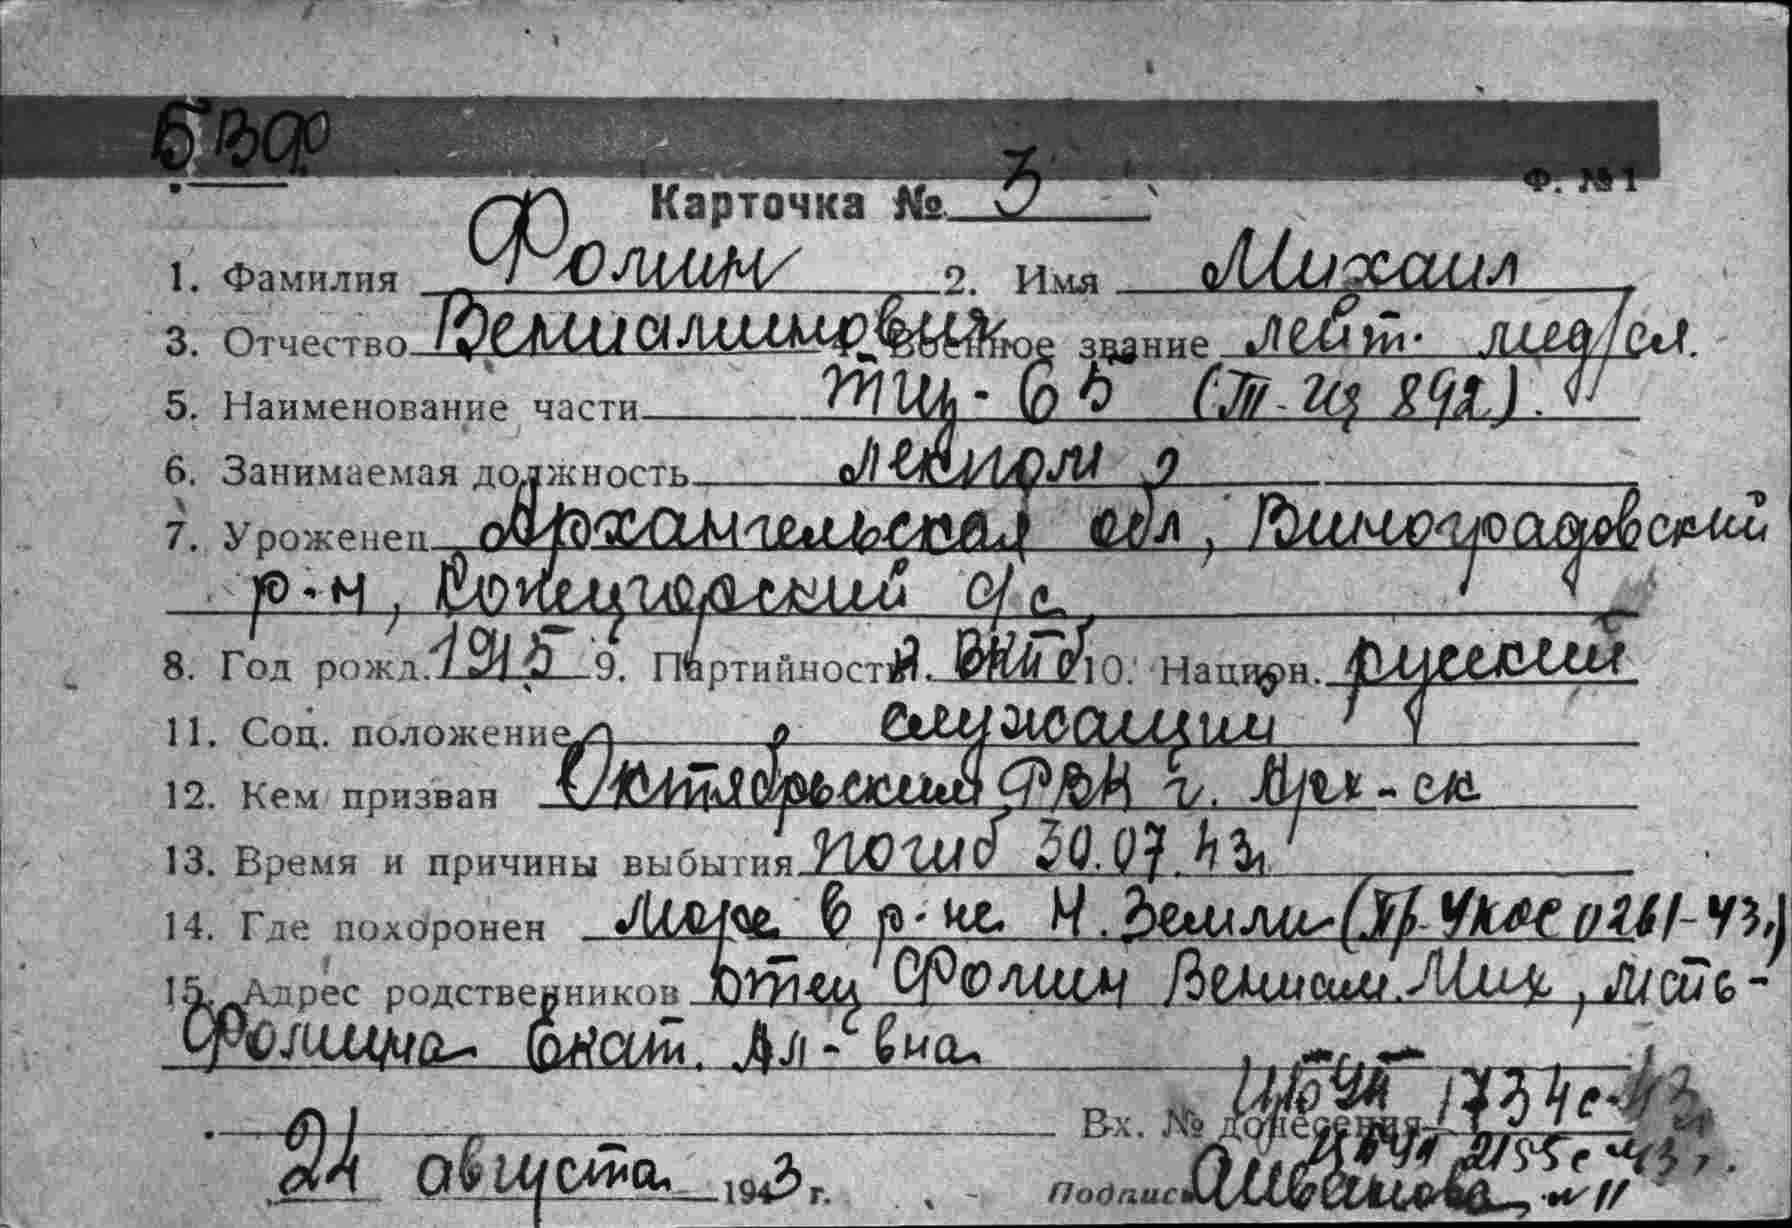 БВФ
Ф. №1
Карточка № 3
1. Фамилия Фомин 2. Имя Михаил
3. Отчество Вениаминович 4. Военное звание лейт. мед/сл.
5. Наименование части ТЩ-65 (Т-Щ 892).
6. Занимаемая должность лекпом
7. Уроженец Архангельская обл, Виноградовский
р-н, Конецгорский с/с
8. Год рожд. 1915 9. Партийность ВКПб 10. Национ. русский
11. Соц. положение служащий
12. Кем призван Октябрьским РВК г. Арх-ск
13. Время и причины выбытия погиб 30.07.43г.
14. Где похоронен море в р-не Н. Земли (Пр. УКОС 0261-43.)
15. Адрес родственников отец Фомин Вениам. Мих, мать-
Фомина Екат. Ал-вна
Вх. № донесения ЦБУП 1734с-43г.
ЦБУП 2155с-43г.
24 августа 1943 г. Подпись